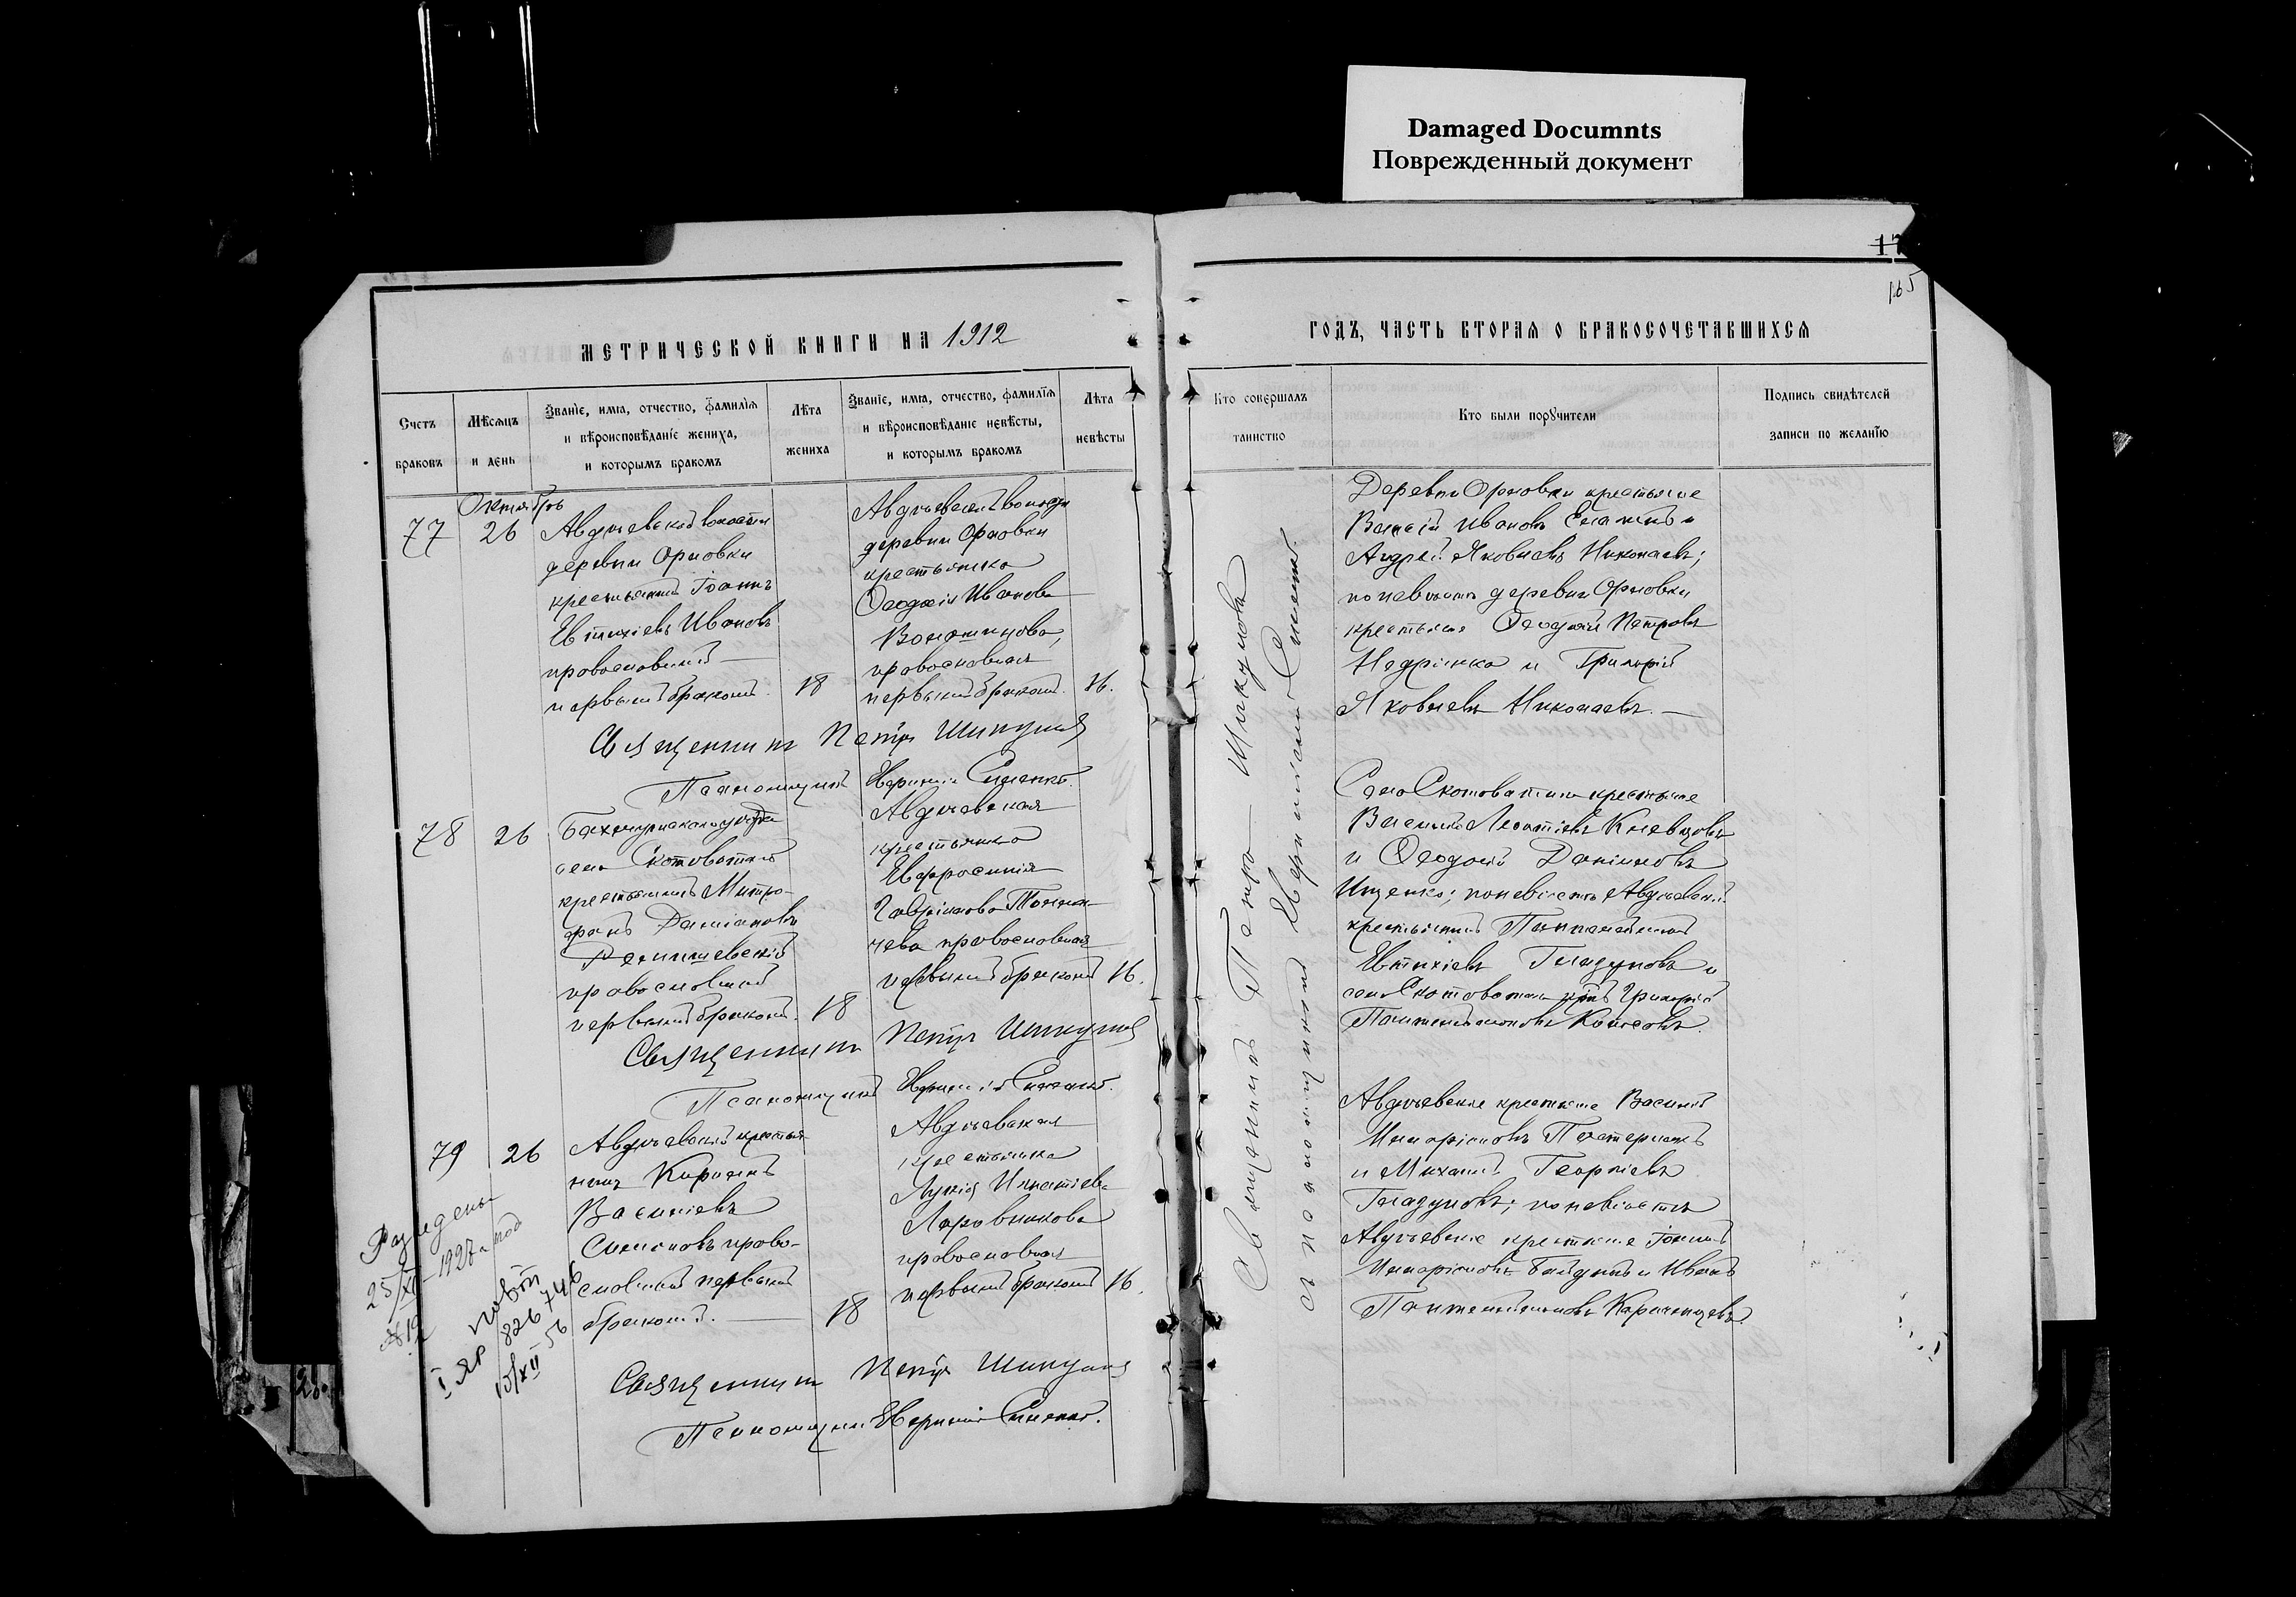 Damaged Documnts
Поврежденный документ
17
165
МЕТРИЧЕСКОЙ КНИГИ НА 1912
ГОДЪ, ЧАСТЬ ВТОРАЯ О БРАКОСОЧЕТАВШИХСЯ
Счетъ браковъ
Мѣсяцъ и день
Званіе, имя, отчество, фамилія и вѣроисповѣданіе жениха, и которымъ бракомъ
Лѣта жениха
Званіе, имя, отчество, фамилія и вѣроисповѣданіе невѣсты, и которымъ бракомъ
Лѣта невѣсты
Кто совершалъ таинство
Кто были поручители
Подпись свидѣтелей записи по желанію
Октябрь
77
26
Авдѣевской волости
деревни Орловки
крестьянинъ Іоаннъ
Евтихіевъ Ивановъ
православный
первымъ бракомъ.
18
Авдѣевской волости
деревни Орловки
крестьянка
Ѳеодосія Иванова
Волошинова,
православная
первымъ бракомъ.
16.
Деревни Орловки крестьяне
Василій Ивановъ
Андрей Яковлевъ Николаевъ;
по невѣстѣ деревни Орловки
крестьяне Ѳеодосій Петровъ
и Григорій
Яковлевъ Николаевъ.
Священникъ Петръ Шикуловъ
Псаломщикъ
78
26
Бахмутскаго уѣзда
села Скотоватой
крестьянинъ Митро-
фанъ Даміановъ
православный
первымъ бракомъ.
18
Авдѣевская
крестьянка
Евфросинія
Гавріилова
чева православная
первымъ бракомъ
16.
Села Скотоватой крестьяне
Василій Леонтіевъ
и Ѳеодосій Даніиловъ
Ищенко; по невѣстѣ Авдѣевскій
крестьянинъ Пантелеимонъ
Евтихіевъ Гладуновъ и
села Скотоватой кр-нъ Григорій
Пантелеимоновъ
Священникъ Петръ Шикуловъ
Псаломщикъ
79
26
Авдѣевскій крестья-
нинъ Кирилъ
Василіевъ
Симоновъ право-
славный первымъ
бракомъ.
18
Авдѣевская
крестьянка
Лукія Игнатіева
православная
первымъ бракомъ
16.
Авдѣевскіе крестьяне Василій
Иларіоновъ
и Михаилъ Георгіевъ
Гладуновъ; по невѣстѣ
Авдѣевскіе крестьяне Іоаннъ
Иларіоновъ и Иванъ
Пантелеимоновъ
Разведены
25/XI-1927 год
№ 19
повт
I ЯР 826746
13/XII 56
Священникъ Петръ Шикуловъ
Псаломщикъ
Священникъ Петръ Шикуловъ
Псаломщикъ